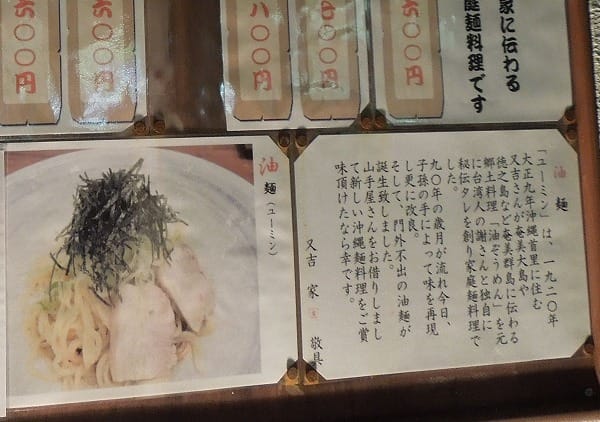 家に伝わる
庭麺料理です
六〇〇円
七〇〇円
八〇〇円
六〇〇円
六〇〇円
油麺
「ユーミン」は、一九二〇年
大正九年沖縄首里に住む
又吉さんが奄美大島や
徳之島など奄美群島に伝わる
郷土料理「油ぞうめん」を元
に台湾人の謝さんと独自に
秘伝タレを創り家庭麺料理で
した。
九〇年の歳月が流れ今日、
子孫の手によって味を再現
し更に改良。
そして、門外不出の油麺が
誕生致しました。
山手屋さんをお借りしまし
て新しい沖縄麺料理をご賞
味頂けたなら幸です。
又吉家 敬具
油麺(ユーミン)